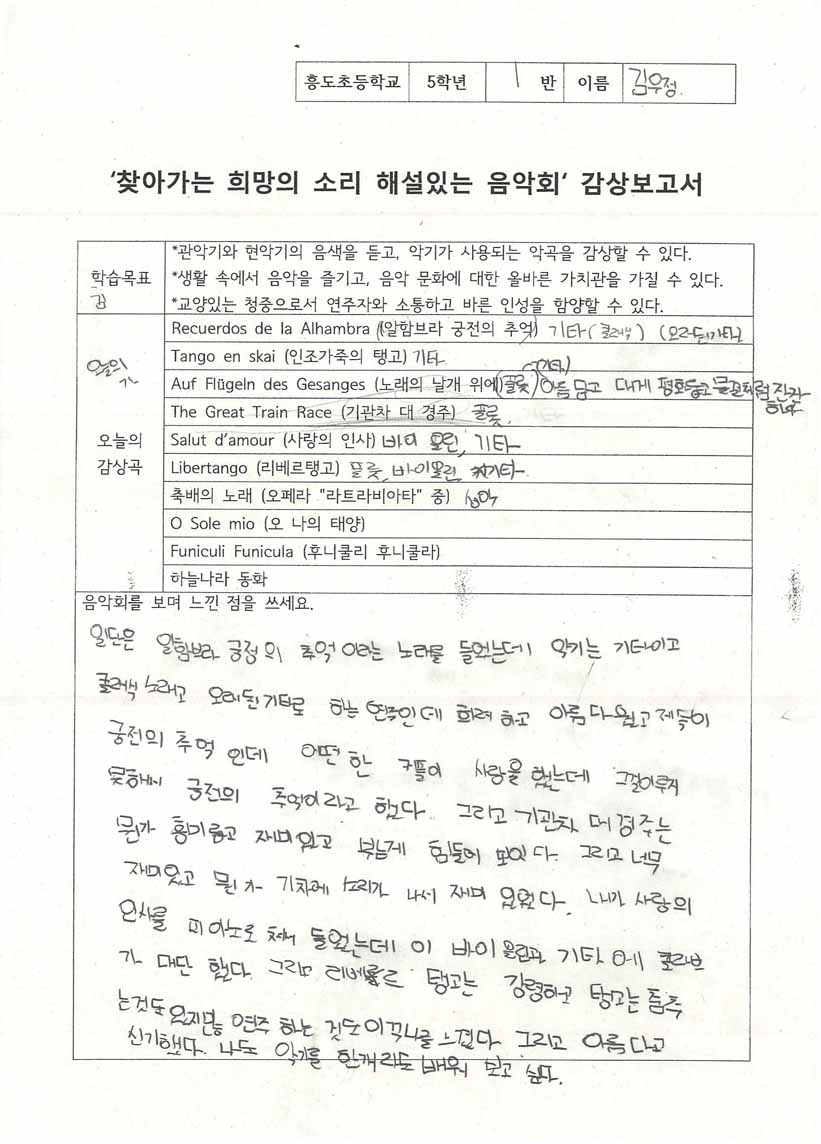 흥도초등학교 5학년 1 반 이름 김우정.
'찾아가는 희망의 소리 해설있는 음악회' 감상보고서
학습목표
감
*관악기와 현악기의 음색을 듣고, 악기가 사용되는 악곡을 감상할 수 있다.
*생활 속에서 음악을 즐기고, 음악 문화에 대한 올바른 가치관을 가질 수 있다.
*교양있는 청중으로서 연주자와 소통하고 바른 인성을 함양할 수 있다.
오늘의
감상곡
Recuerdos de la Alhambra (알함브라 궁전의 추억) 기타(클래색) (오래된기타)
Tango en skai (인조가죽의 탱고) 기타
Auf Flügeln des Gesanges (노래의 날개 위에) (플룻, 기타) 아름답고 되게 평화롭고 물결처럼 진잔하다
The Great Train Race (기관차 대 경주) 플룻,
Salut d'amour (사랑의 인사) 바이올린, 기타
Libertango (리베르탱고) 플룻, 바이올린, 기타
축배의 노래 (오페라 "라트라비아타" 중) 성악
O Sole mio (오 나의 태양)
Funiculi Funicula (후니쿨리 후니쿨라)
하늘나라 동화
음악회를 보며 느낀 점을 쓰세요.
일단은 알함브라 궁정의 추억 이라는 노래를 들었는데 악기는 기타이고
클래색 노래고 오래된 기타로 하는 연주인데 화려 하고 아름다웠고 제목이
궁전의 추억 인데 어떤 한 커플이 사랑을 했는데 그걸이루지
못해서 궁전의 추억이라고 했다. 그리고 기관차 대 경주는
뭔가 흥미롭고 재미있고 부는게 힘들어 보였다. 그리고 너무
재미있고 뭔가 기차에 소리가 나서 재미 있었다. 내가 사랑의
인사를 피아노로 쳐서 들었는데 이 바이올린과 기타에 콜라보
가 대단 했다. 그리고 리베르 탱고는 강렬하고 탱고는 춤추
는것도 있지만 연주 하는 것도 이꾸나를 느꼈다. 그리고 아름다고
신기했다. 나도 악기를 한개라도 배워 보고 싶다.